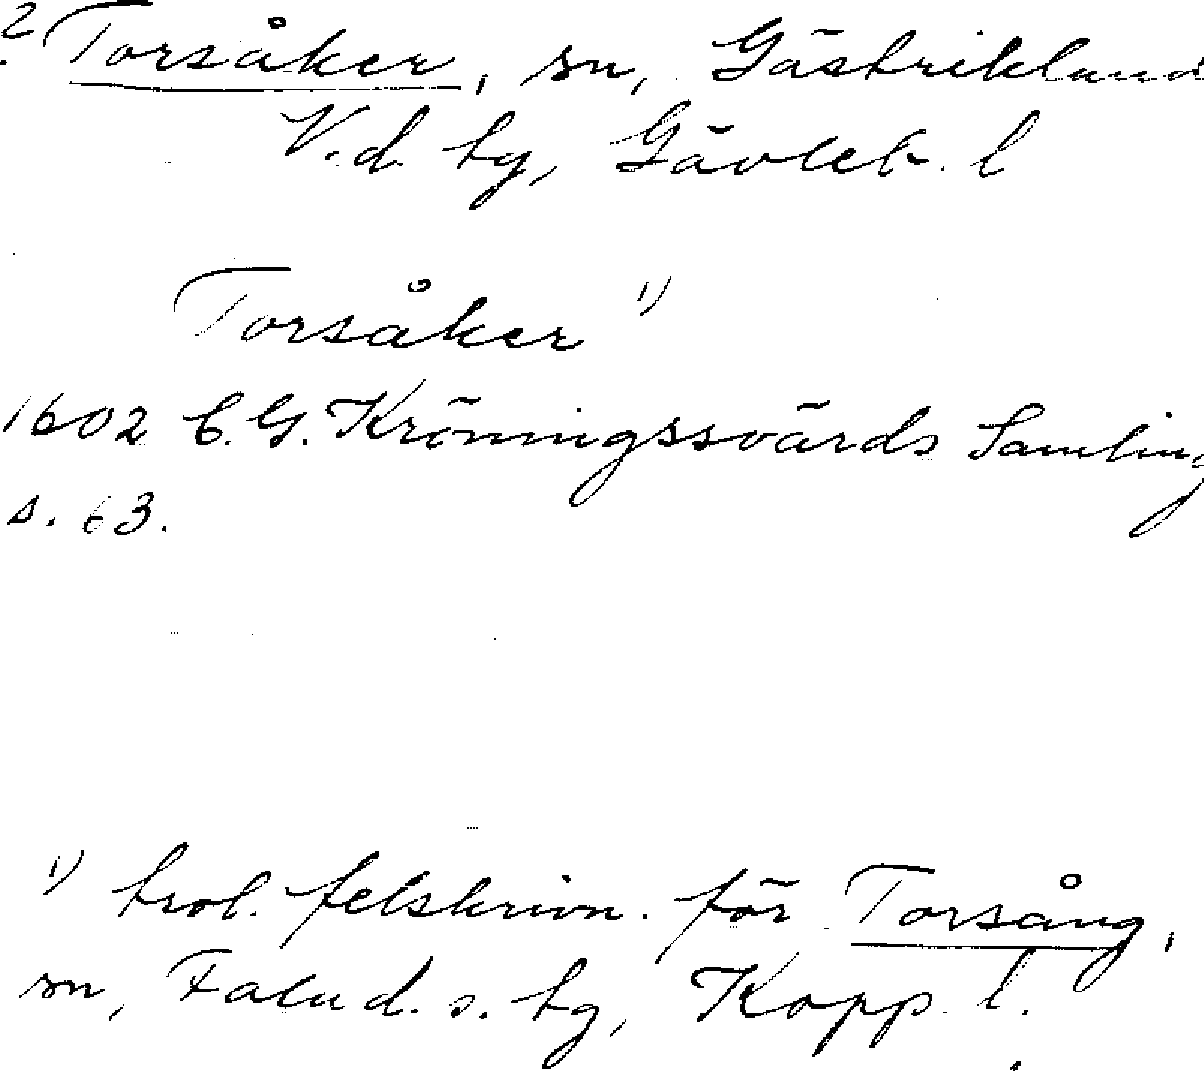 ? Torsåker, sn, Gästrikland
V. d. tg, Gävleb. l
Torsåker ¹)
1602 C. G. Kröningssvärds Samling
s. 63.
¹) trol. felskrivn. för Torsång,
sn, Falu d. s. tg, Kopp. l.